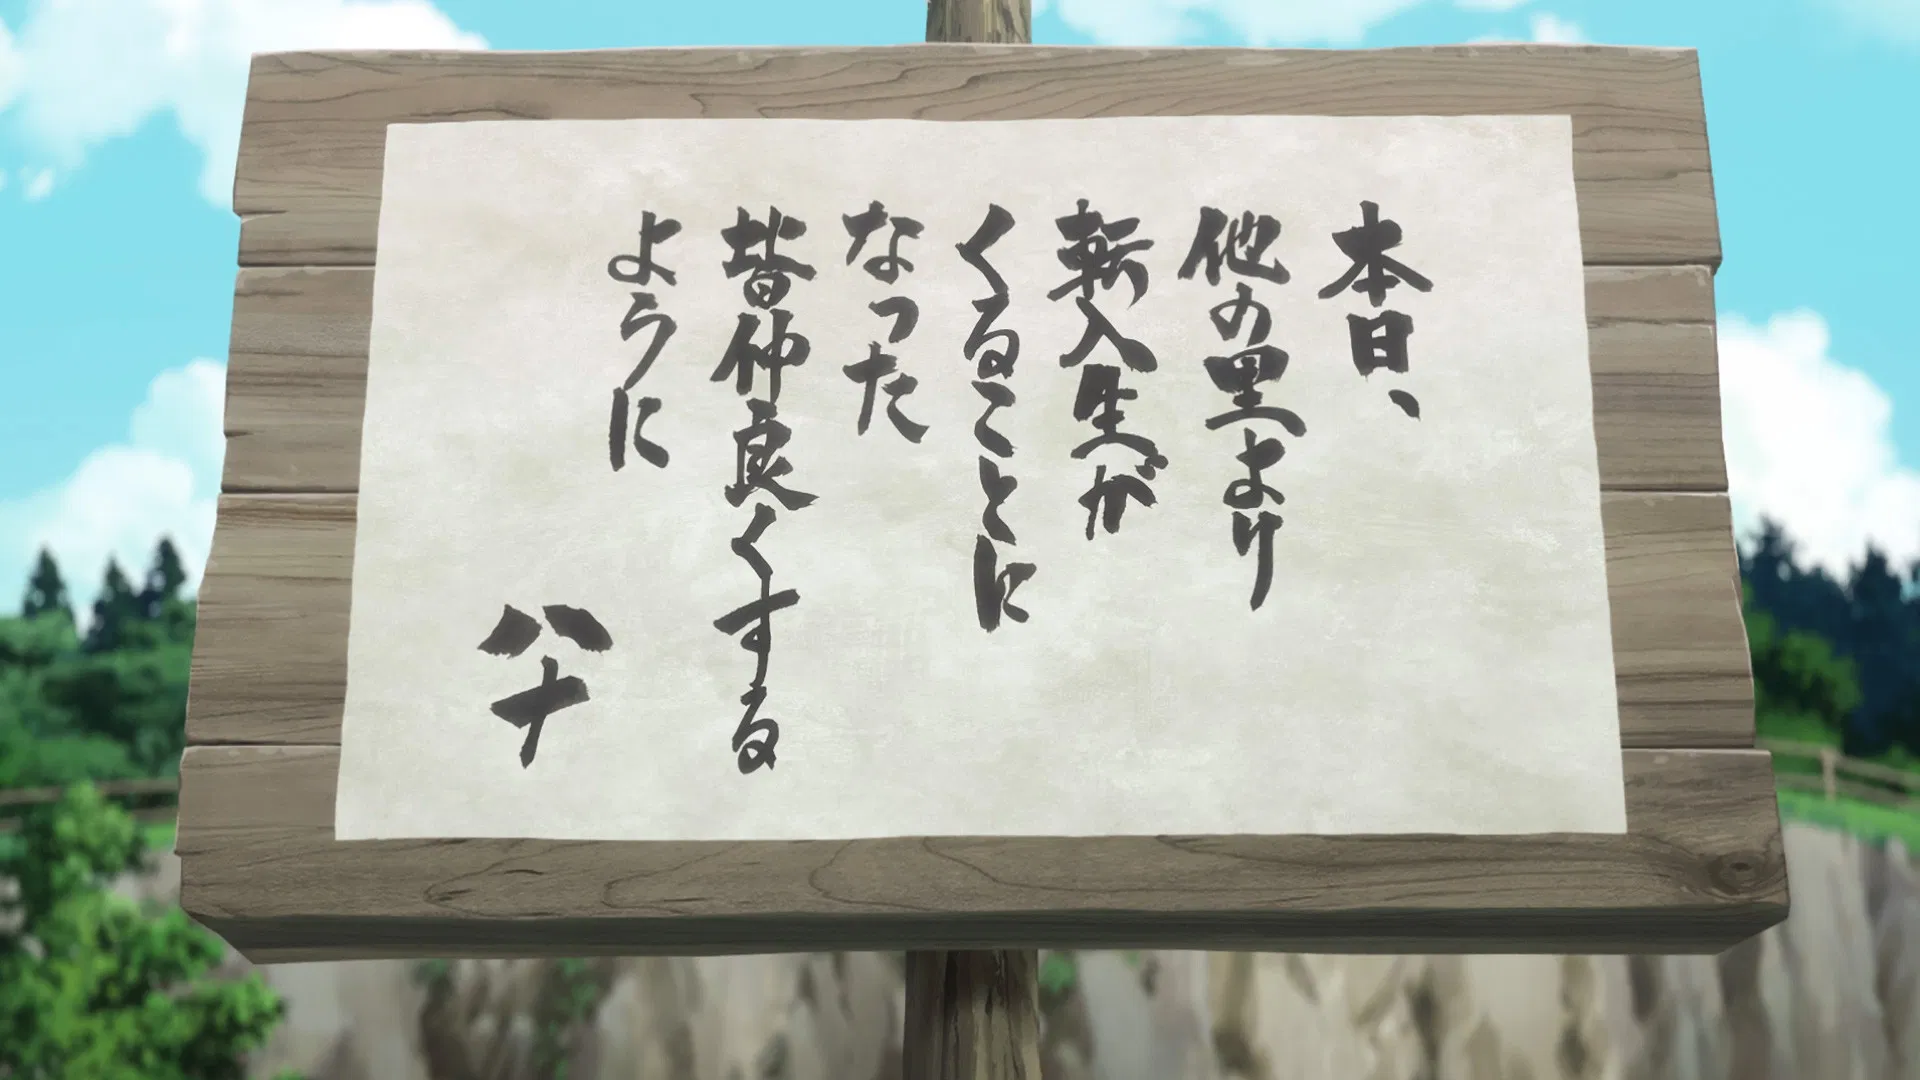 本日、
他の里より
転入生が
くることに
なった
皆仲良くする
ように
八十